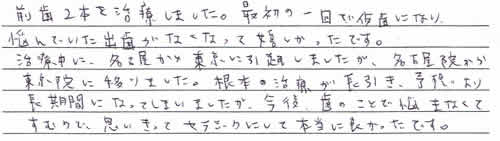 前歯2本を治療しました。最初の一回で仮歯になり、
悩んでいた出歯がなくなって嬉しかったです。
治療中に、名古屋から東京に引越しましたが、名古屋院から
東京院に移りました。根本の治療が長引き、予定より
長期間になってしまいましたが、今後、歯のことで悩まなくて
すむので、思いきってセラミックにして本当に良かったです。